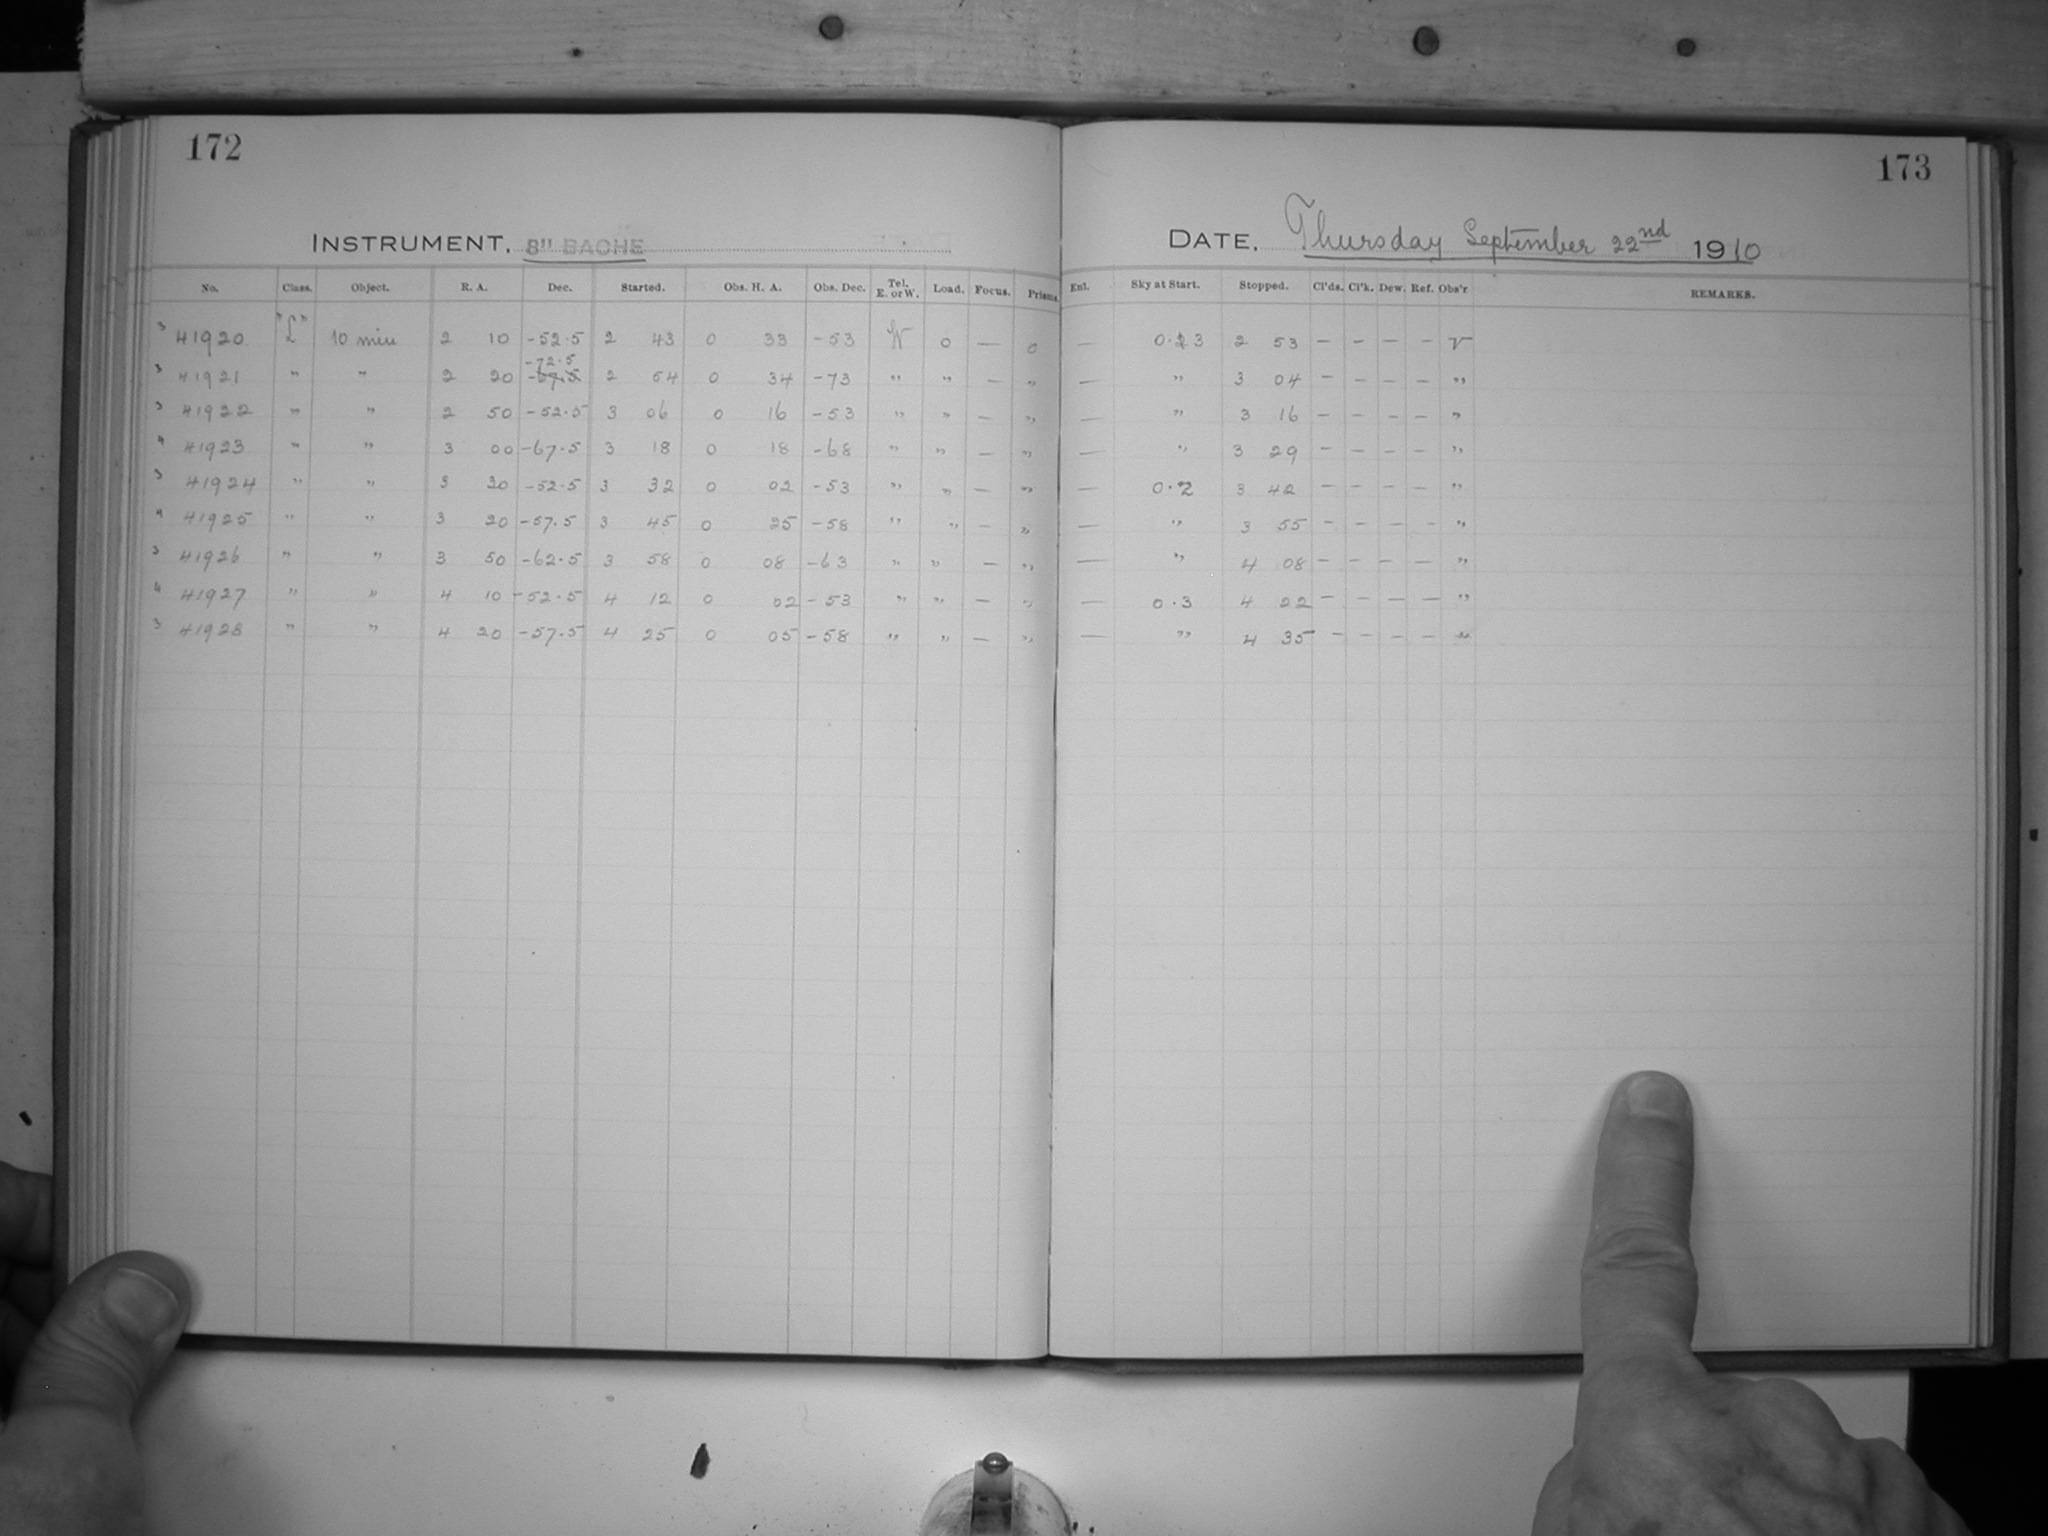 172
173
INSTRUMENT, 8" BACHE
DATE, Thursday September 22nd 1910
No. Class. Object. R. A. Dec. Started. Obs. H. A. Obs. Dec. Tel. E. or W. Load. Focus. Prisms. Enl. Sky at Start. Stopped. Cl'ds. Cl'k. Dew. Ref. Obs'r REMARKS.
3 41920 "L" 10 min 2 10 -52.5 2 43 0 33 -53 W 0 — 0 — 0.23 2 53 — — — — V
-72.5
3 41921 " " 2 20 -67.5 2 54 0 34 -73 " " — " — " 3 04 — — — — "
3 41922 " " 2 50 -52.5 3 06 0 16 -53 " " — " — " 3 16 — — — — "
4 41923 " " 3 00 -67.5 3 18 0 18 -68 " " — " — " 3 29 — — — — "
3 41924 " " 3 30 -52.5 3 32 0 02 -53 " " — " — 0.2 3 42 — — — — "
4 41925 " " 3 20 -57.5 3 45 0 25 -58 " " — " — " 3 55 — — — — "
3 41926 " " 3 50 -62.5 3 58 0 08 -63 " " — " — " 4 08 — — — — "
4 41927 " " 4 10 -52.5 4 12 0 02 -53 " " — " — 0.3 4 22 — — — — "
3 41928 " " 4 20 -57.5 4 25 0 05 -58 " " — " — " 4 35 — — — — "